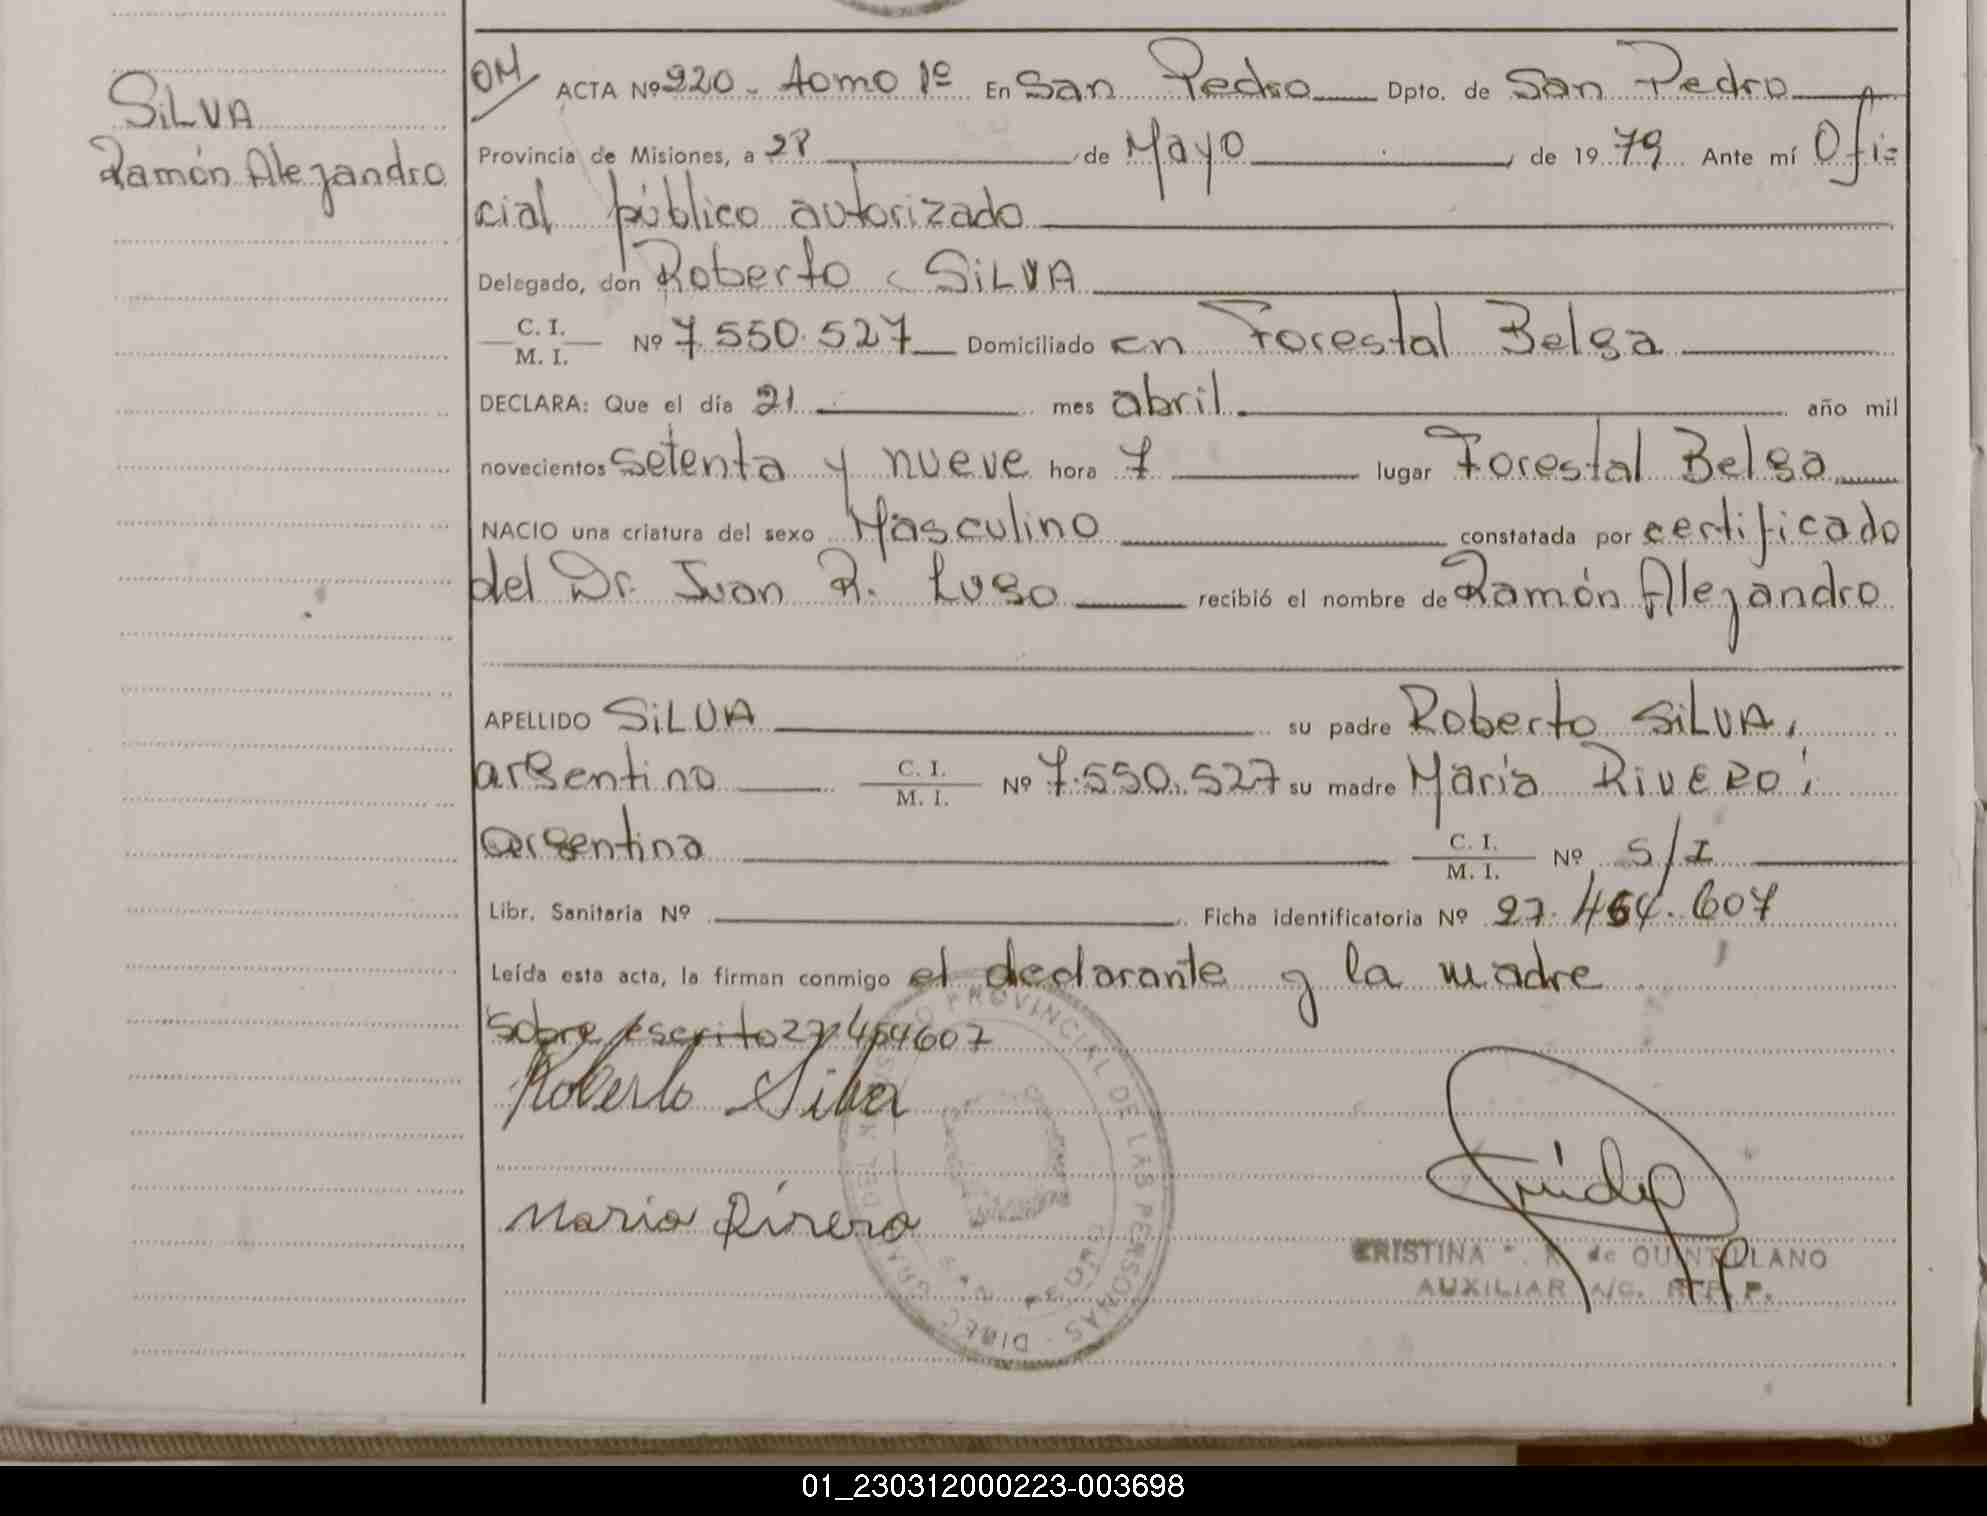 SILVA
Ramón Alejandro
OM
ACTA Nº 920 - tomo 1º En San Pedro Dpto. de San Pedro
Provincia de Misiones, a 28 de Mayo de 1979 Ante mí Ofi=
cial público autorizado
Delegado, don Roberto SILVA
C. I. / M. I. Nº 7.550.527 Domiciliado en Forestal Belga
DECLARA: Que el día 21 mes abril año mil
novecientos setenta y nueve hora 7 lugar Forestal Belga
NACIO una criatura del sexo Masculino constatada por certificado
del Dr. Juan R. Lugo recibió el nombre de Ramón Alejandro
APELLIDO SILVA su padre Roberto SILVA,
argentino C. I. / M. I. Nº 7.550.527 su madre María RIVERO,
argentina C. I. / M. I. Nº S/I
Libr. Sanitaria Nº Ficha identificatoria Nº 27.464.607
Leída esta acta, la firman conmigo el declarante y la madre
Sobre escrito 27464607
Roberto Silva
Maria Rivero
PROVINCIAL DE LAS PERSONAS
SAN PEDRO
CRISTINA de QUINTILLANO
AUXILIAR A/C. R.P.P.
01_230312000223-003698